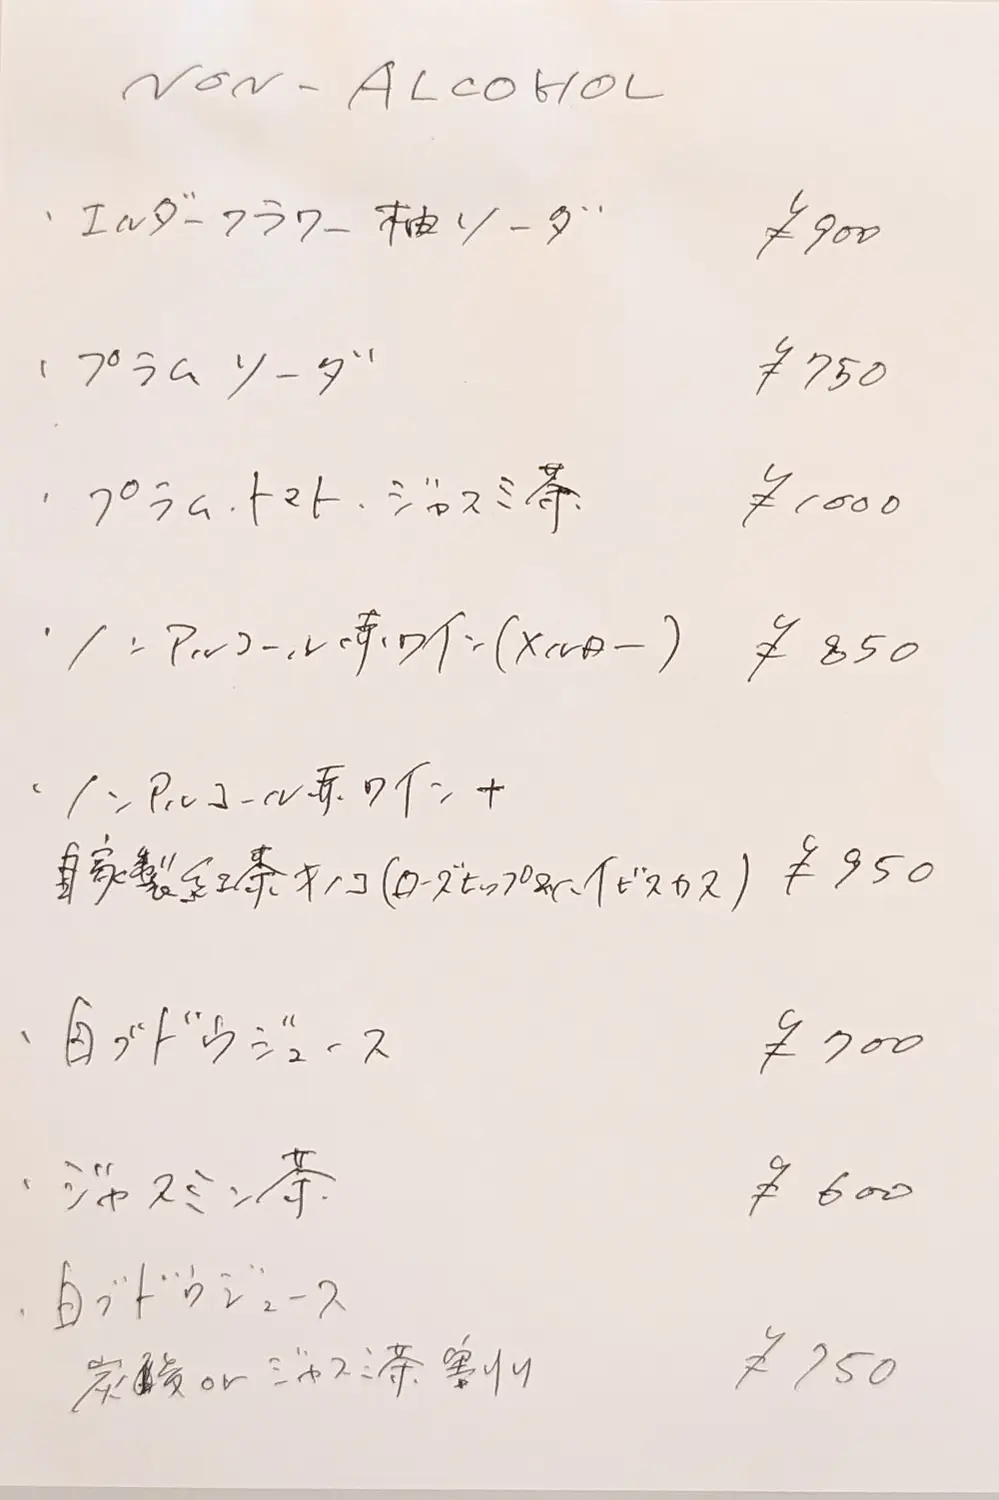 NON-ALCOHOL
・エルダーフラワー柚ソーダ ¥900
・プラムソーダ ¥750
・プラム・トマト・ジャスミン茶 ¥1000
・ノンアルコール赤ワイン(メルロー) ¥850
・ノンアルコール赤ワイン+
自家製紅茶キノコ(ローズヒップ&ハイビスカス) ¥950
・白ブドウジュース ¥700
・ジャスミン茶 ¥600
・白ブドウジュース
炭酸orジャスミン茶割り ¥750